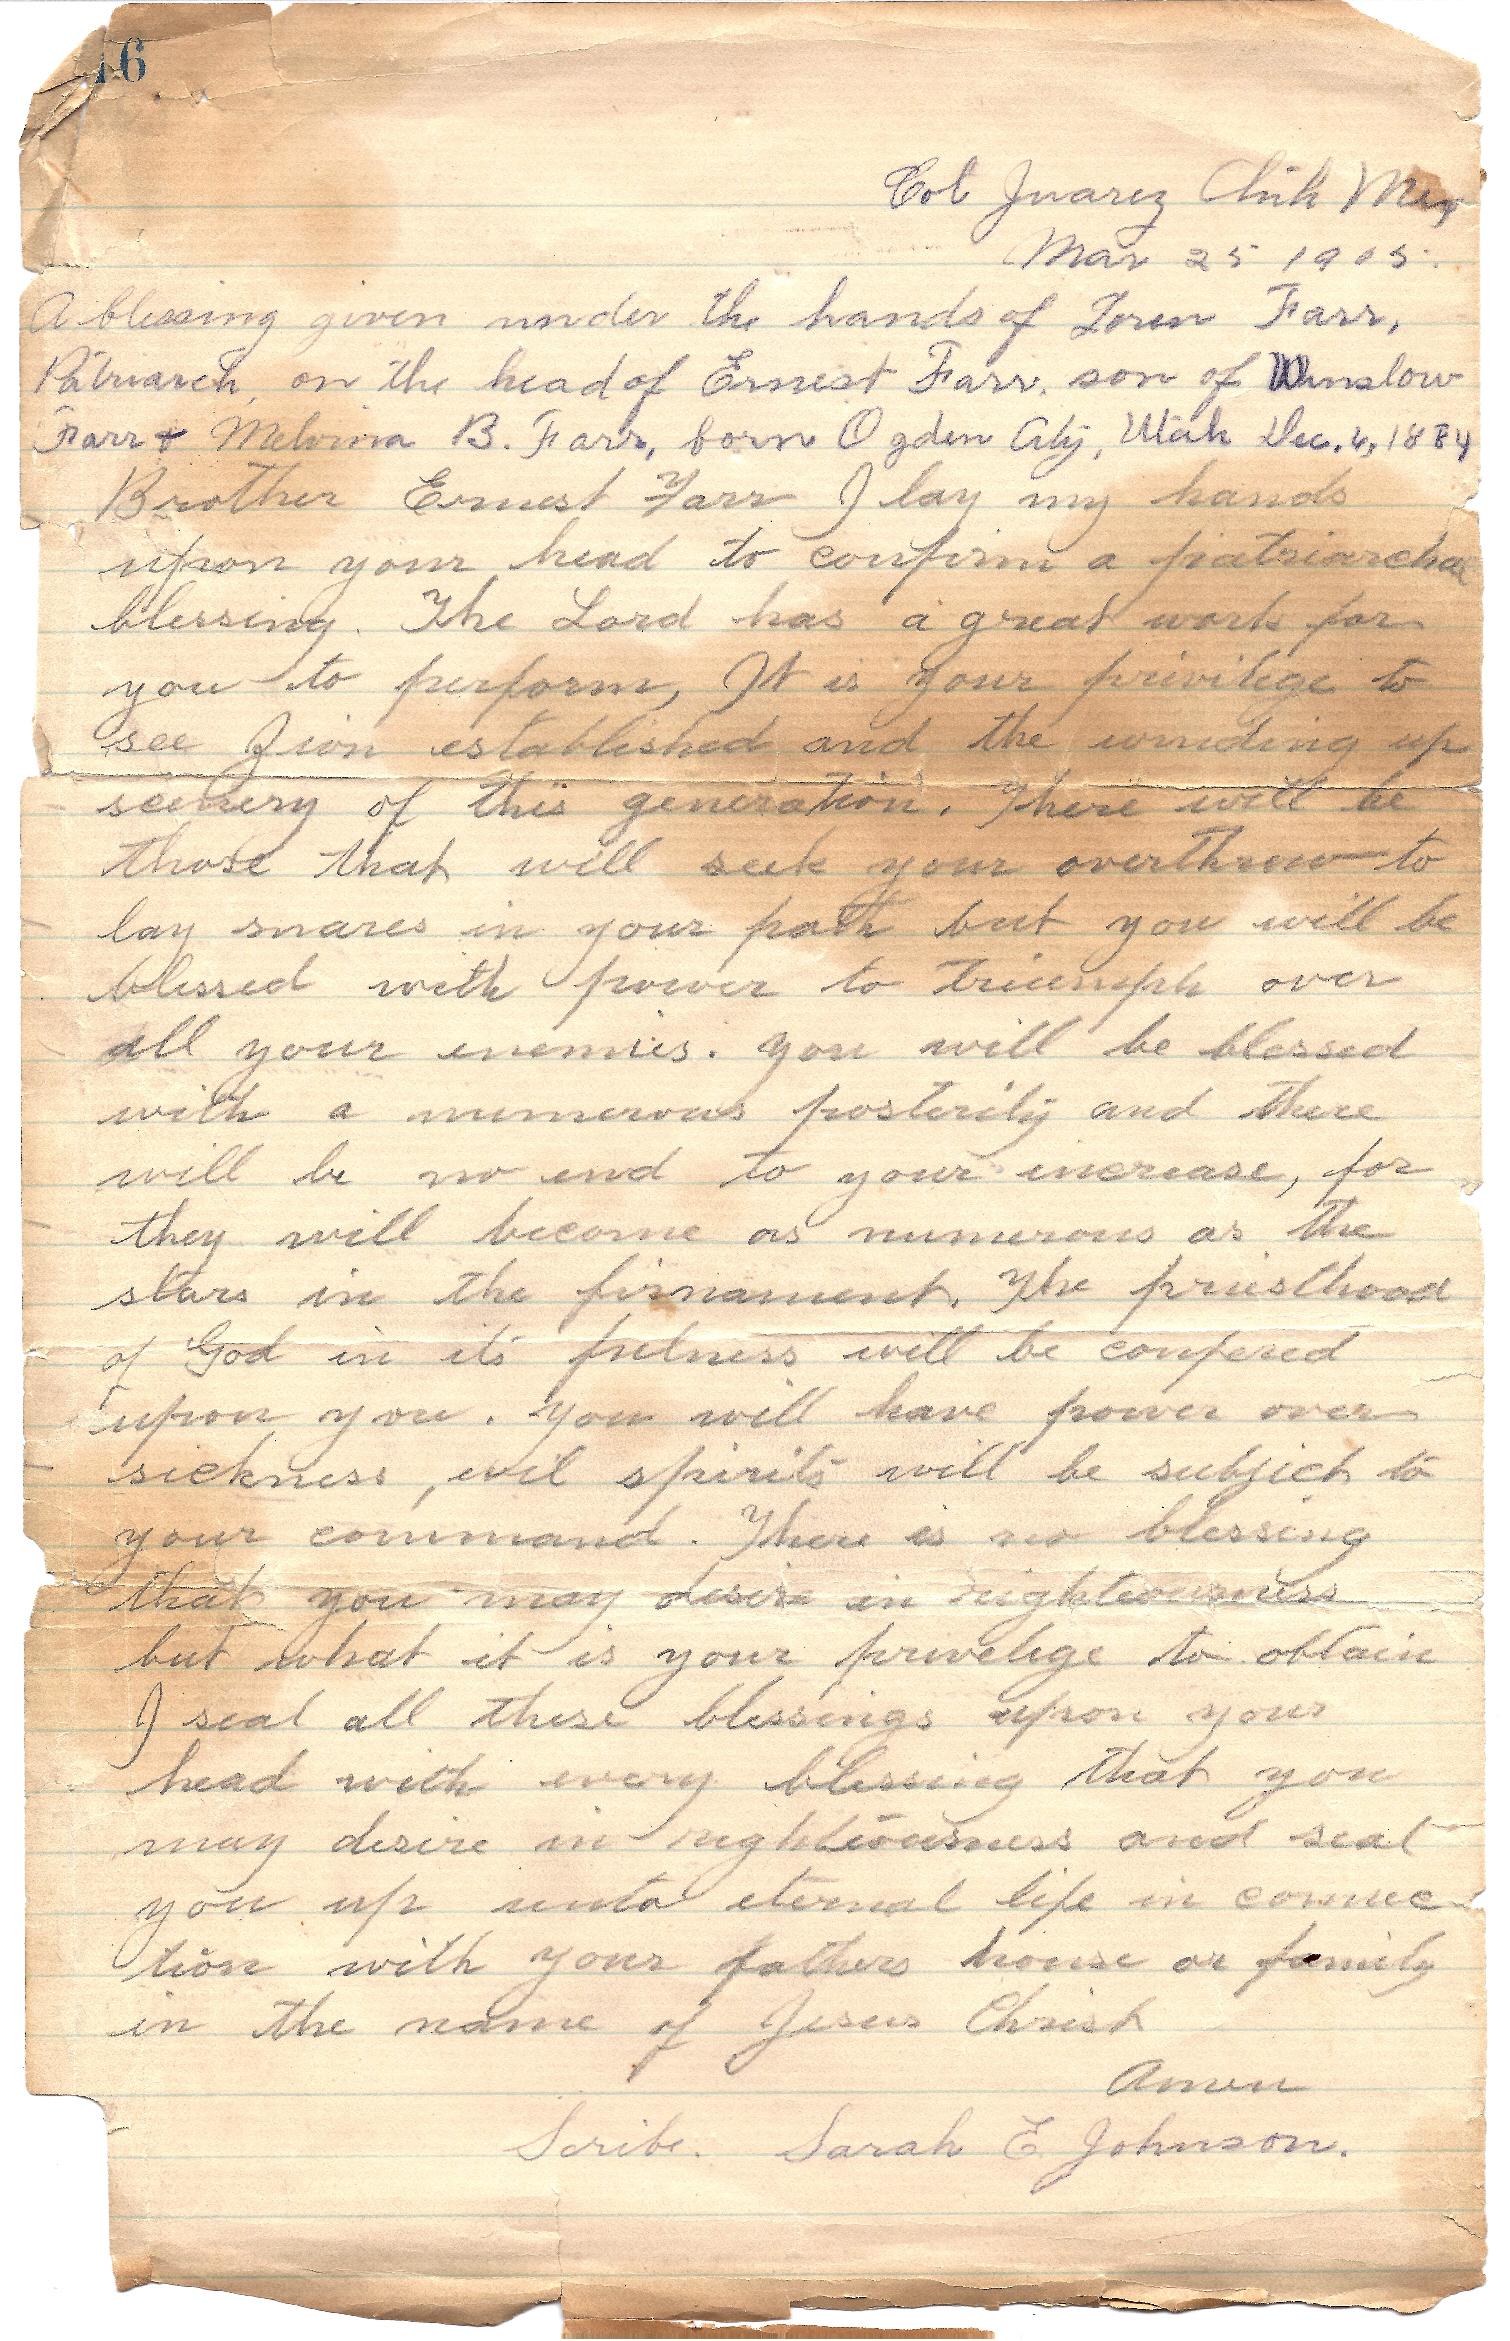 16
Col Juarez Chih Mex
Mar 25 1905.
A blessing given under the hands of Loren Farr,
Patriarch, on the head of Ernest Farr, son of Winslow
Farr & Melvina B. Farr, born Ogden City, Utah Dec. 6, 1884
Brother Ernest Farr I lay my hands
upon your head to confirm a patriarchal
blessing. The Lord has a great work for
you to perform, It is your privilege to
see Zion established and the winding up
scenery of this generation. There will be
those that will seek your overthrow to
lay snares in your path but you will be
blessed with power to triumph over
all your enemies. You will be blessed
with a numerous posterity and there
will be no end to your increase, for
they will become as numerous as the
stars in the firnament. The priesthood
of God in its fulness will be confered
upon you. You will have power over
sickness, evil spirits will be subject to
your command. There is no blessing
that you may desire in righteousness
but what it is your privelege to obtain
I seal all these blessings upon your
head with every blessing that you
may desire in righteousness and seal
you up unto eternal life in connec-
tion with your fathers house or family
in the name of Jesus Christ
Amen
Scribe. Sarah E Johnson.